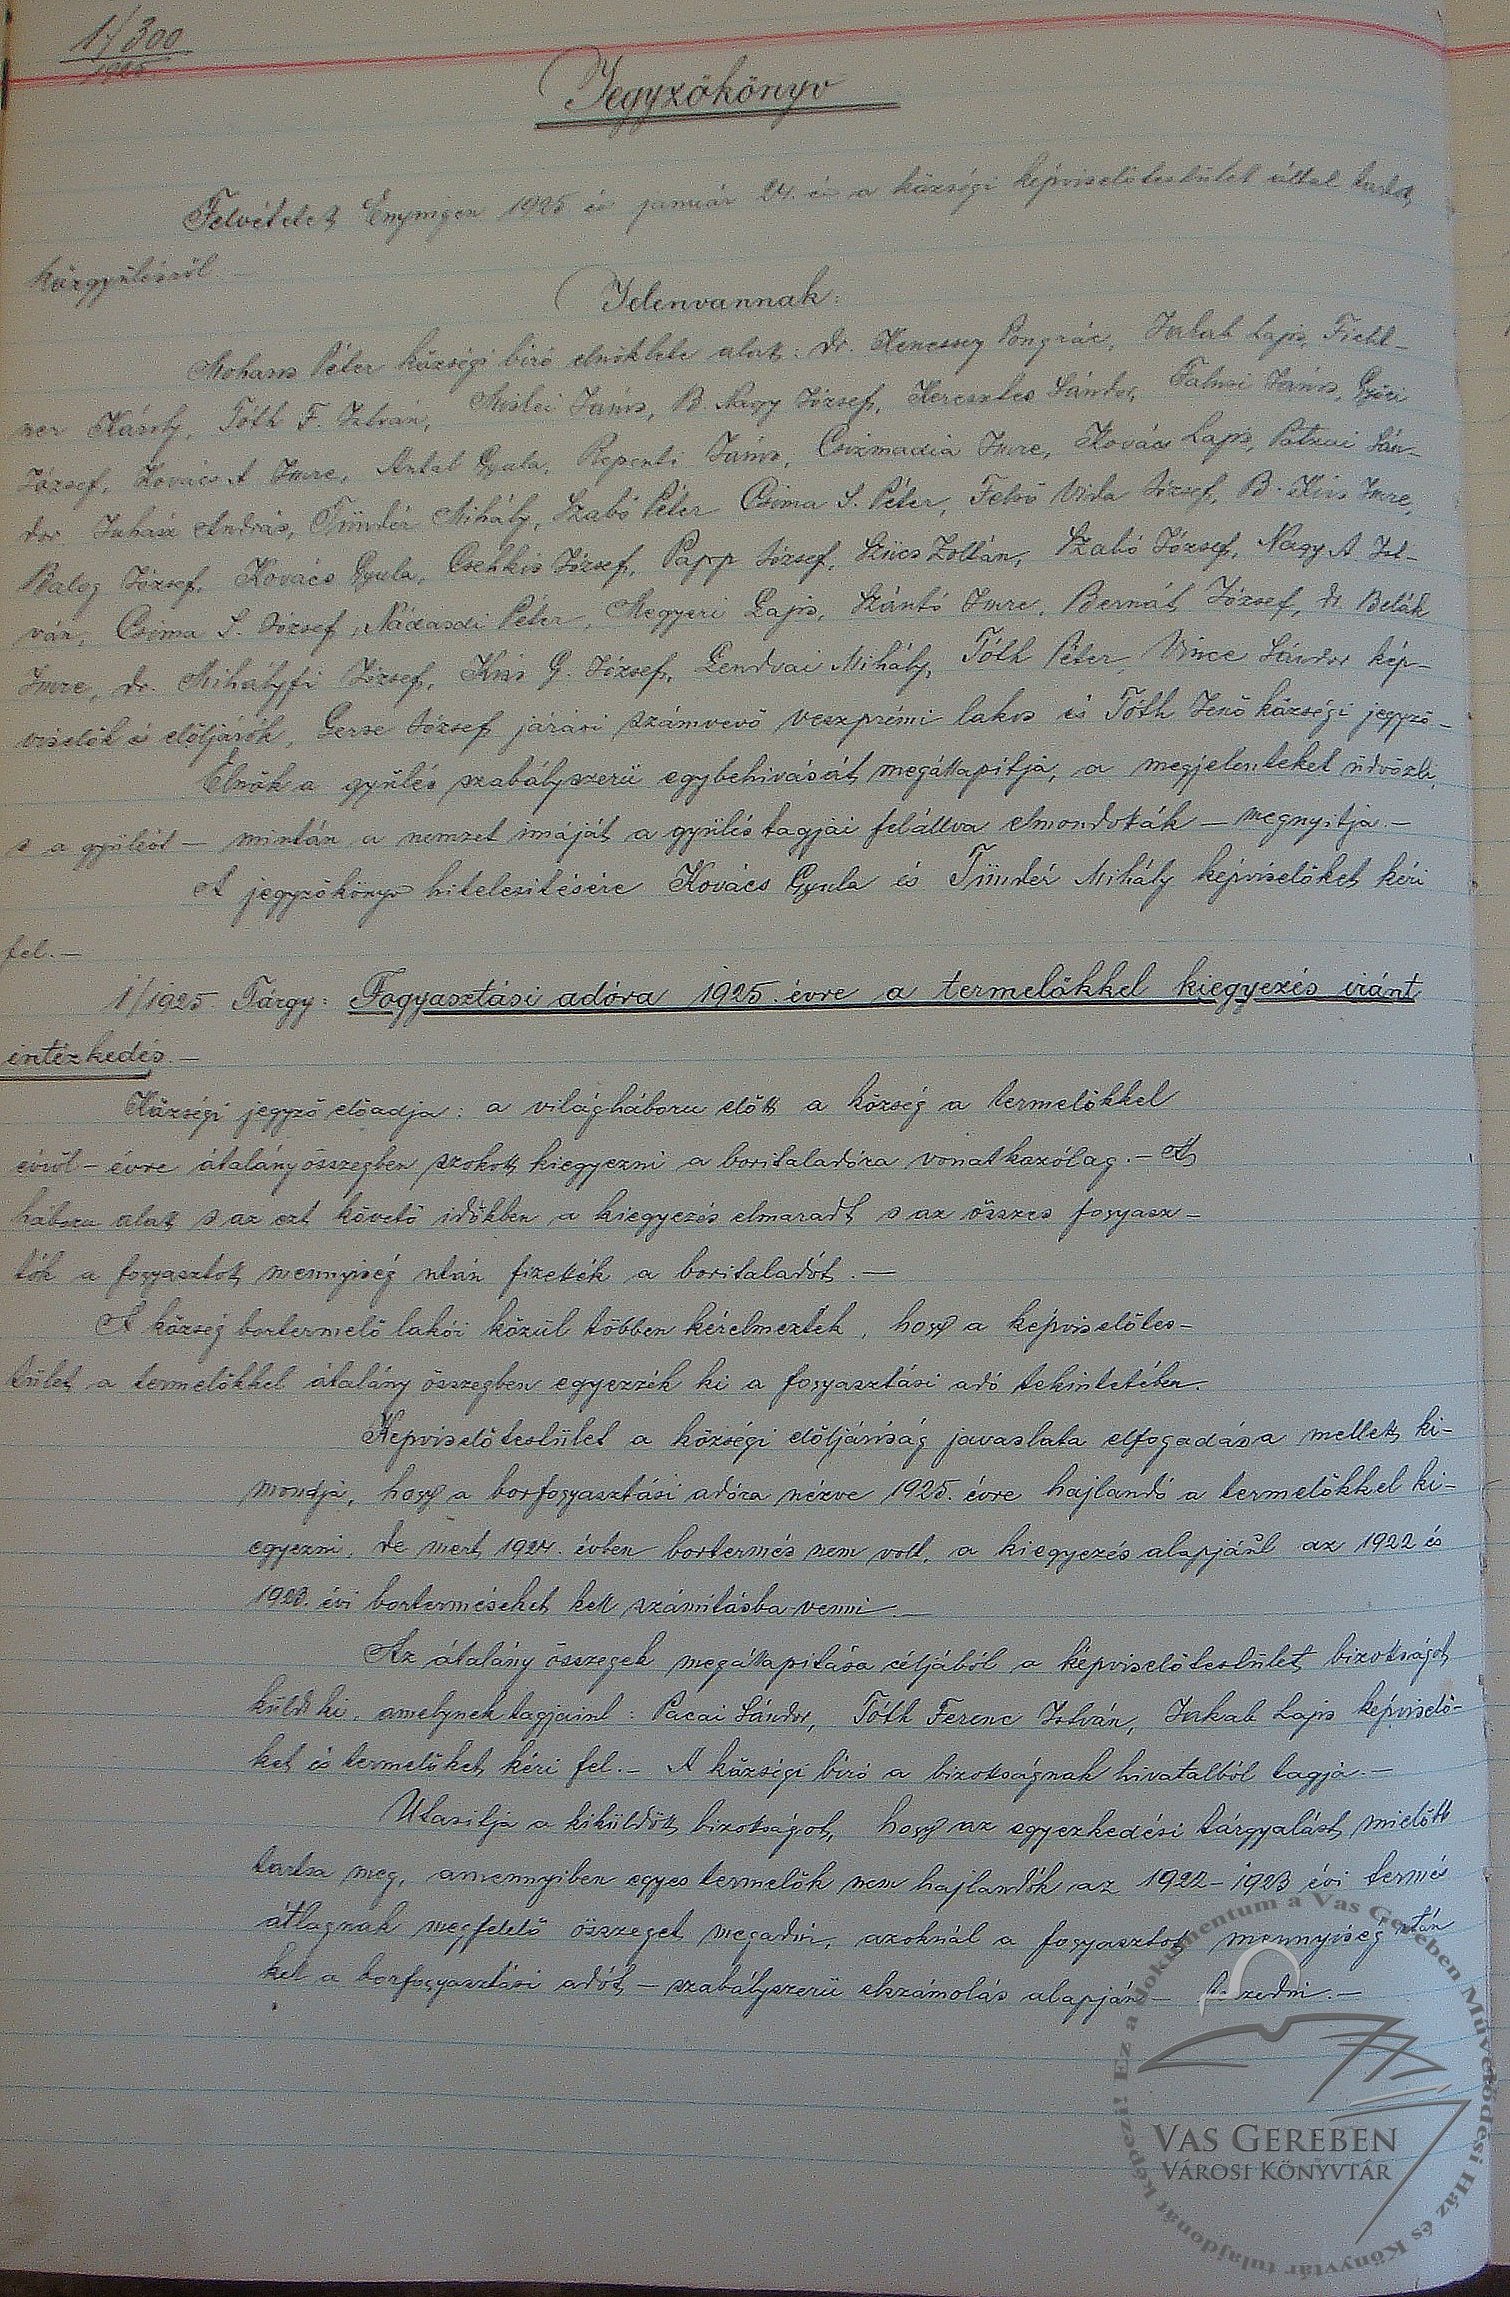 1/300
1925
Jegyzőkönyv
Felvétetett Enyingen 1925 év január 24. én a községi képviselőtestület által tartott
közgyűlésről. –
Jelenvannak:
Péter községi biró elnöklete alatt: dr. Kenessey Pongrác, Jakab Lajos,
Károly, Tóth F. István, János, B. Nagy József, Keresztes Sándor, János, Győri
József, Kovács A Imre, Antal Gyula, Repenti János, Csizmadia Imre, Kovács Lajos, Patzai Sán-
dor Juhász András, Tündér Mihály, Szabó Péter Csima S. Péter, Felső Vida József, B. Kiss Imre,
Balog József, Kovács Gyula, József, Papp József, Szücs Zoltán, Szabó József, Nagy A Ist-
ván, Csima S. József, Nádasdi Péter, Megyeri Lajos, Szántó Imre, Bernát József, dr. Belák
Imre, dr. Mihályfi József, Kiss G. József, Lendvai Mihály, Tóth Péter, Vince Sándor kép-
viselők és elöljárók, Gerse József járási számvevő veszprémi lakos és Tóth Jenő községi jegyző –
Elnök a gyülés szabályszerü egybehivását megállapitja, a megjelenteket üdvözli,
s a gyülést – mintán a nemzet imáját a gyülés tagjai felállva elmondották – megnyitja. –
A jegyzőkönyv hitelesitésére Kovács Gyula és Tündér Mihály képviselőket kéri
fel. –
1/1925. Tárgy: Fogyasztási adóra 1925. évre a termelőkkel kiegyezés iránt
intézkedés. –
Községi jegyző előadja: a világháboru előtt a község a termelőkkel
évről – évre átalány összegben szokott kiegyezni a boritaladóra vonatkozólag. – A
háboru alatt s az ezt követő időkben a kiegyezés elmaradt s az összes fogyasz-
tók a fogyasztott mennyiség után fizették a boritaladót. –
A község bortermelő lakói közül többen kérelmezték, hogy a képviselőtes-
tület a termelőkkel átalány összegben egyezzék ki a fogyasztási adó tekintetében.
Képviselőtestület a községi elöljáróság javaslata elfogadása mellett ki-
mondja, hogy a borfogyasztási adóra nézve 1925. évre hajlandó a termelőkkel ki-
egyezni, de mert 1924. évben bortermés nem volt, a kiegyezés alapjául az 1922 és
1923. évi borterméseket kell számitásba venni. –
Az átalány összegek megállapitása céljából a képviselőtestület bizottságot
küld ki, amelynek tagjaiul: Pacai Sándor, Tóth Ferenc István, Jakab Lajos képviselő-
ket és termelőket kéri fel. – A községi biró a bizottságnak hivatalból tagja. –
Utasitja a kiküldött bizottságot, hogy az egyezkedési tárgyalást mielőtt
tartsa meg, amennyiben egyes termelők nem hajlandók az 1922 – 1923 évi termés
átlagnak megfelelő összeget megadni, azoknál a fogyasztott mennyiség után
kell a borfogyasztási adót – szabályszerü elszámolás alapján – beszedni. –
Ez a dokumentum a Vas Gereben Művelődési Ház és Könyvtár tulajdonát képezi!
VAS GEREBEN
VÁROSI KÖNYVTÁR